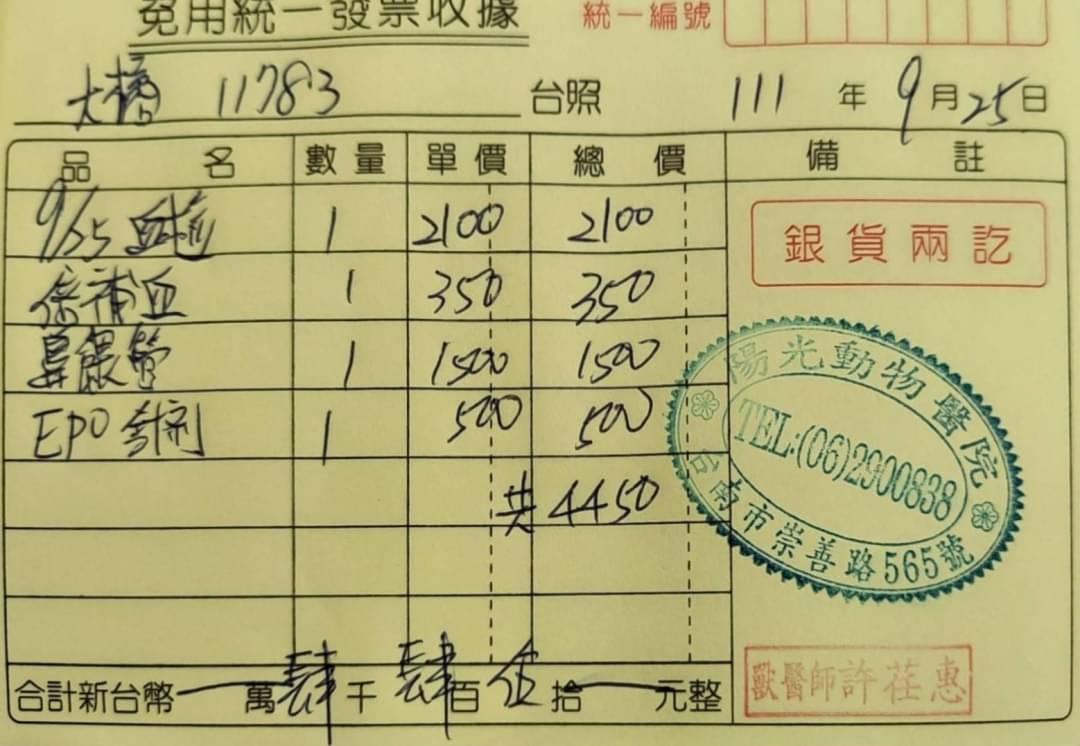 免用統一發票收據
統一編號
大橋 11783 台照 111 年 9 月 25 日
品名 數量 單價 總價 備註
9/25 血檢 1 2100 2100
保補血 1 350 350
鼻餵管 1 1500 1500
EPO 針劑 1 500 500
共 4450
合計新台幣 萬 肆 千 肆 百 伍 拾 元整
銀貨兩訖
陽光動物醫院
TEL:(06)2900838
台南市崇善路565號
獸醫師許荏惠